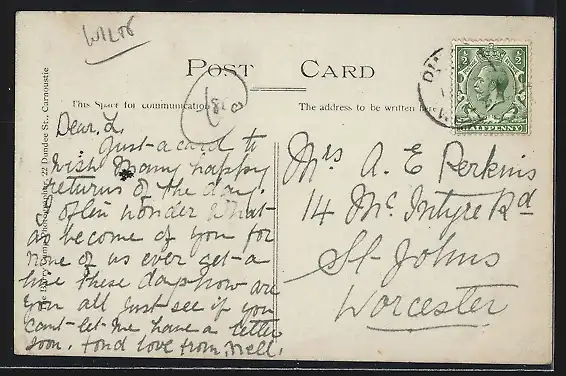 WILTS
POST CARD
This Space for communication
The address to be written here
Dear L.
Just a card to
wish Many happy
returns of the day.
often wonder What
as become of you for
none of us ever get a
line these days how are
you all just see if you
cant let me have a letter
soon. fond love from Nell.
Mrs A. E. Perkins
14 Mc Intyre Rd
St Johns
Worcester
HALFPENNY
Photographer, 22 Dundee St., Carnoustie